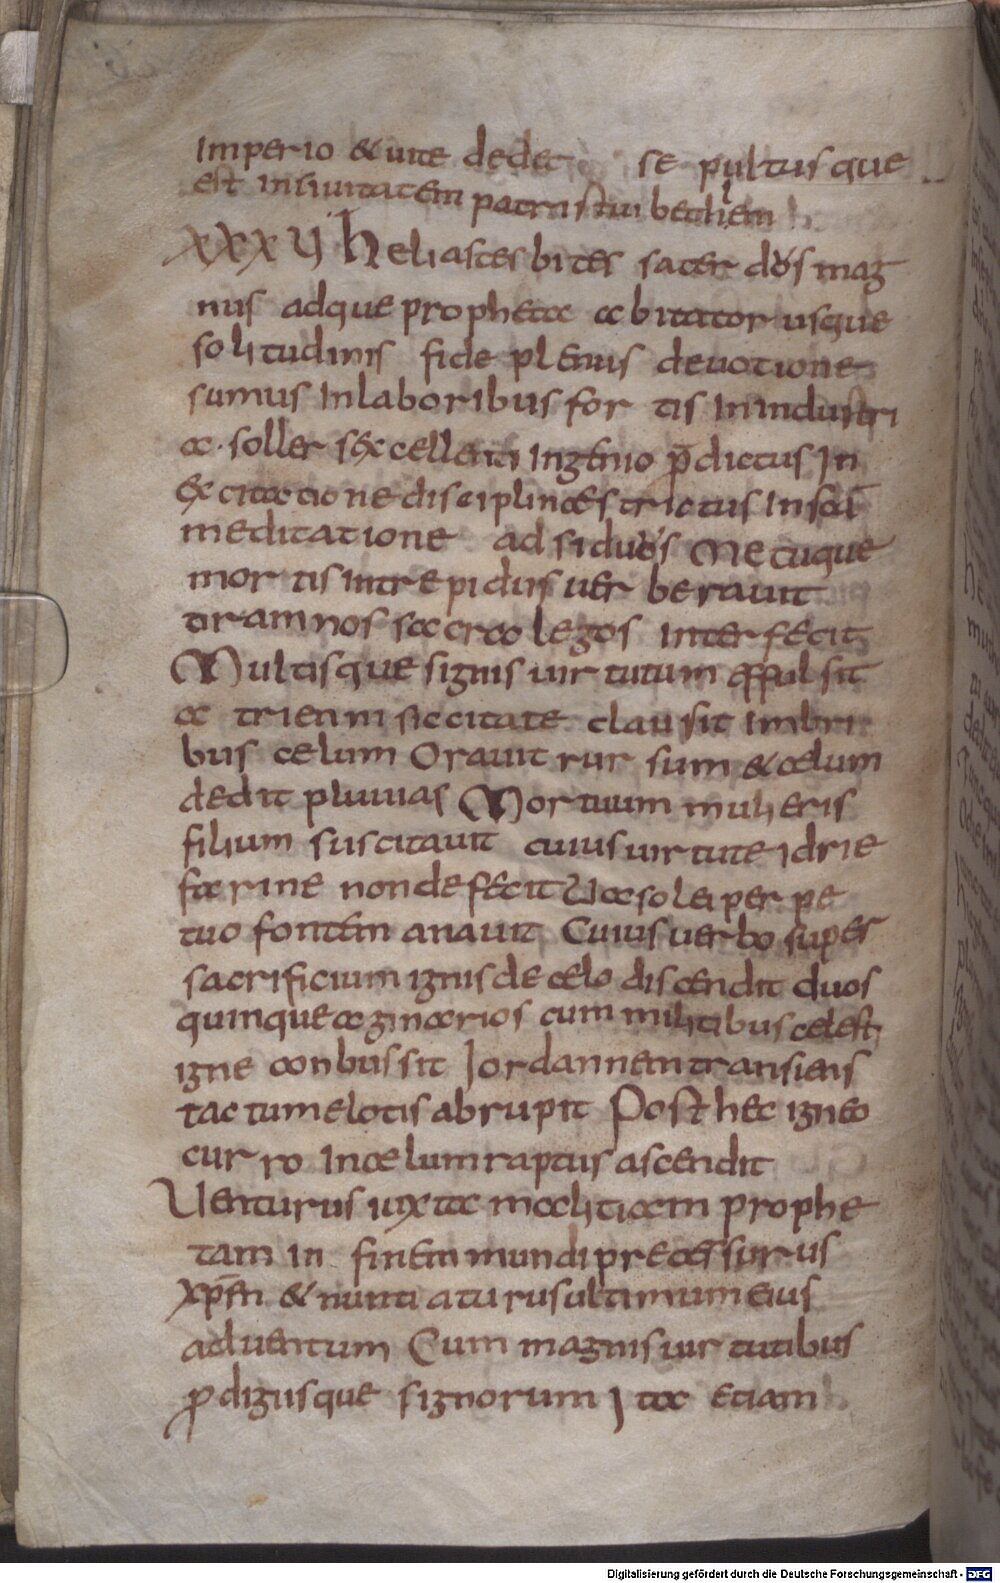 Imperio & uite dedet se pultusque
est inciuitatem patris sui bethlem
XXXV heliastesbites sacerdos mag
nus adque propheta abitator usque
solitudinis fide plenus deuotione
sumus Inlaboribus for tis In industri
a · soller s excellenti Ingenio p̄dictus In
excitatione disciplinae strictus In sc̄a
meditatione adsiduos Metuque
mor tis intrepidus uer berauit
tirannos sacrolegos interfecit
Multisque signis uir tutum effulsit
ac trienni siccitate clausit imbri
bus celum Orauit rur sum & celum
dedit pluuias Mortuum mulieris
filium suscitauit cuius uirtute idrie
farine non defecit Uasolei per pe
tuo fontem anauit Cuius uerbo super
sacrificium ignis de celo discendit duos
quinquaginarios cum militibus celesti
igne conbussit Iordannem transiens
tactu melotis abrupit Post hec igneo
cur ro In celum raptus ascendit
Uenturus iuxta malitiam prophe
tam in finem mundi precessurus
xp̄m & nuntiaturus ultimum eius
aduentum Cum magnis uir tutibus
p̄digiisque signorum Ita etiam
Digitalisierung gefördert durch die Deutsche Forschungsgemeinschaft - DFG